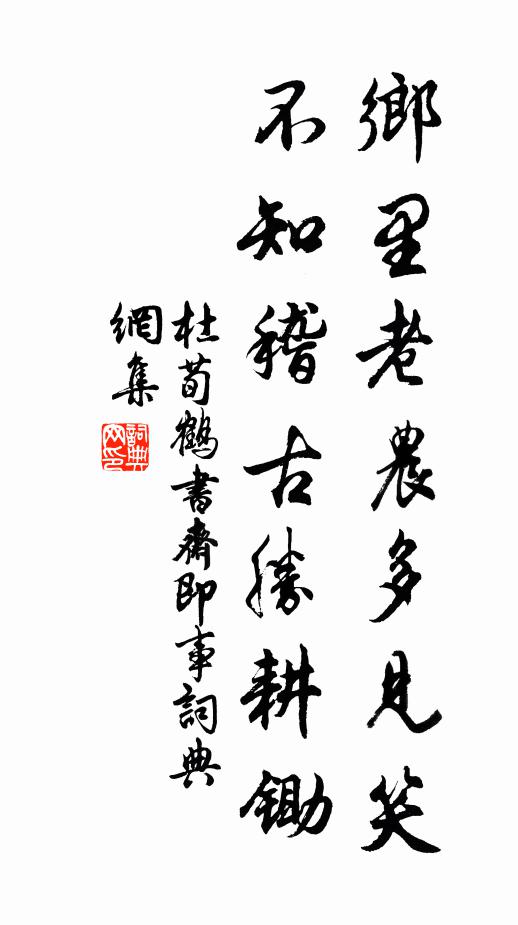 鄉里老農多見笑
不知稽古勝耕鋤
杜荀鶴書齋即事詞典
網集
詞典
網印